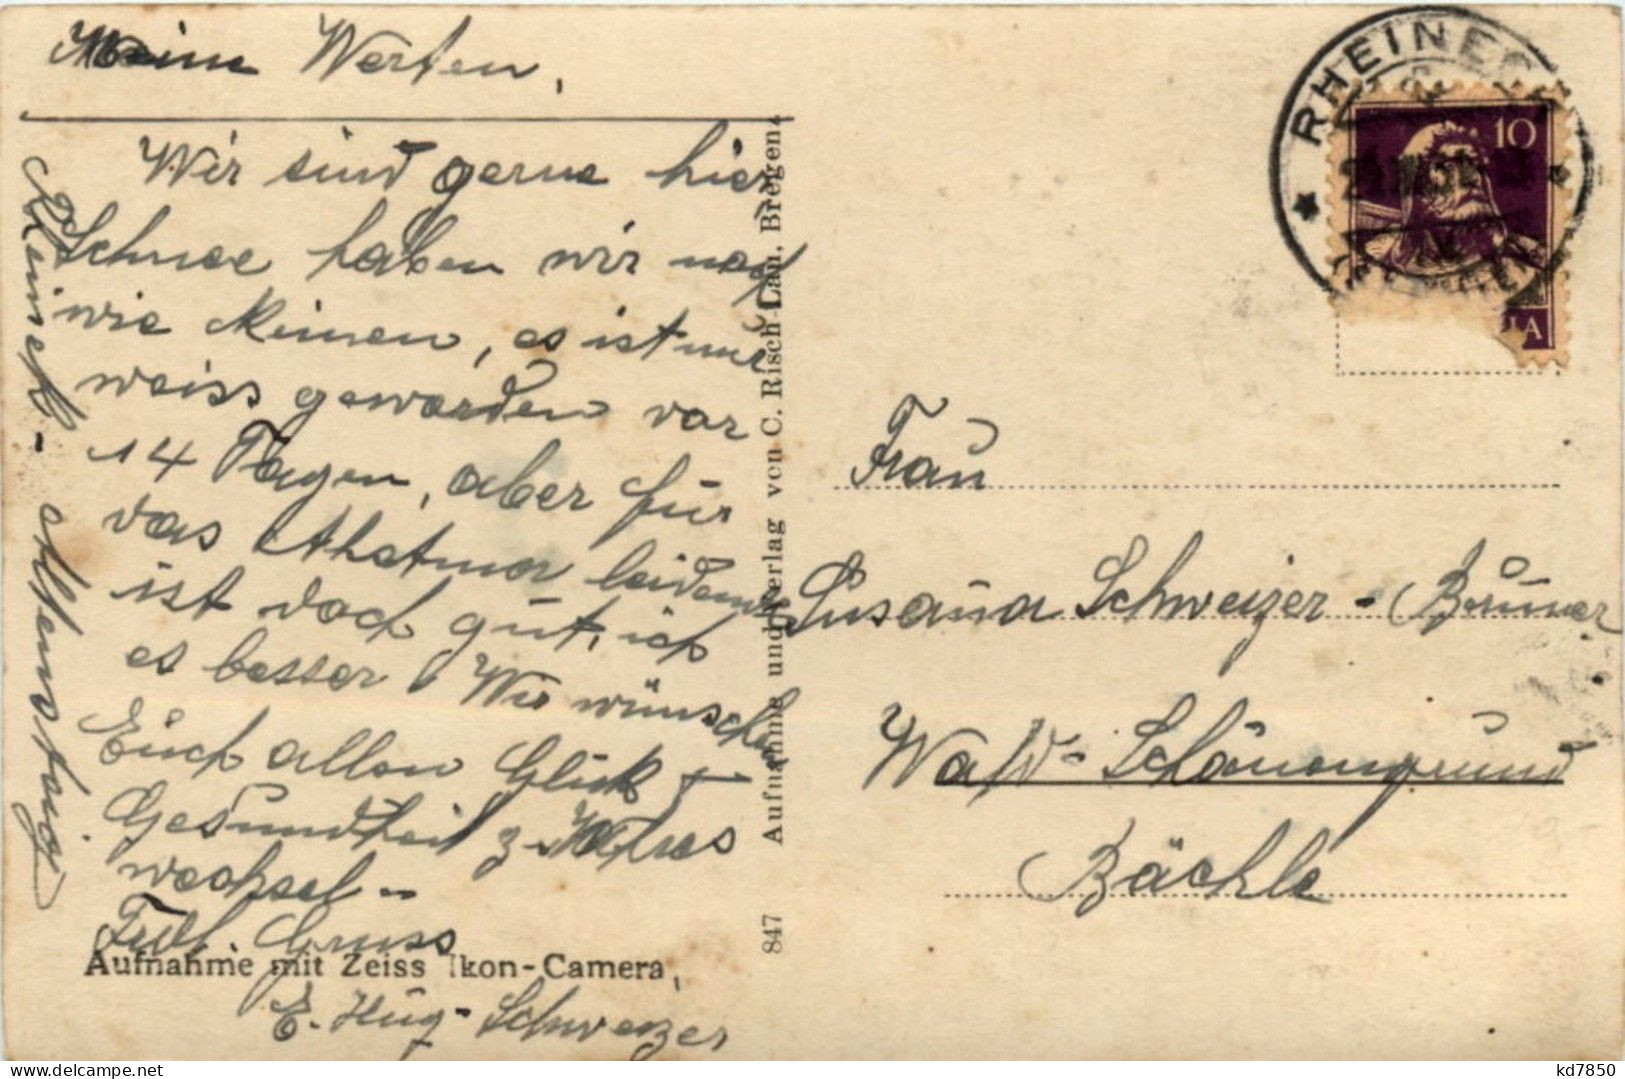 Meine Werten,
Wir sind gerne hier
Schnee haben wir noch
wie keinen, es ist nur
weiss geworden vor
14 Tagen, aber für
das Athetmor leidende
ist doch gut, ich
es besser Wir wünschen
Euch allen Glück +
Gesundheit z. Jahres
wechsel -
Frdl Gruss
E. Hug-Schweizer
Reineck - Altenstaig
Aufnahme mit Zeiss Ikon-Camera
847 Aufnahme und Verlag von C. Risch-Lau, Bregenz
RHEINECK
10
Frau
Susana Schweizer-Brunner
Wald-Schönengrund
Bächle
kd7850